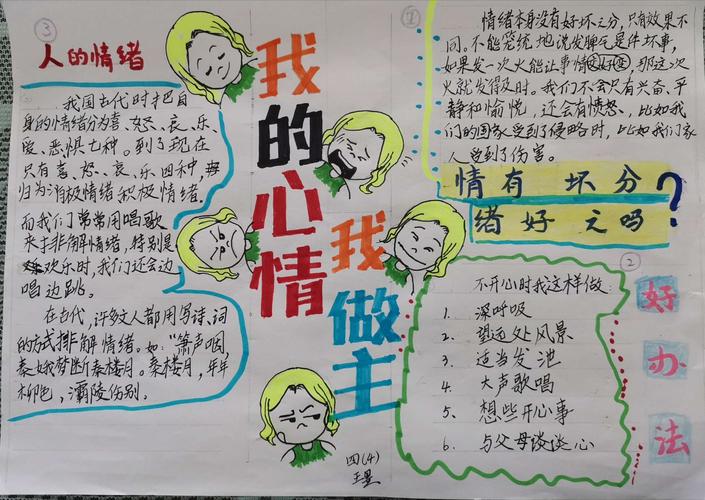 ③
人的情绪
我国古代时把自
身的情绪分为喜、怒、哀、乐、
爱、恶惧七种。到了现在
只有喜、怒、哀、乐四种,
归为消极情绪积极情绪.
而我们常常用唱歌
来排解情绪,特别是
欢乐时,我们还会边
唱边跳。
在古代,许多文人都用写诗、词
的方式排解情绪。如:“箫声咽,
秦娥梦断秦楼月。秦楼月,年年
柳色,灞陵伤别。
我的心情
我做主
四(4)
王昱
①
情绪本身没有好坏之分,只有效果不
同。不能笼统地说发脾气是件坏事,
如果发一次火能让事情变好,那这次
火就发得及时。我们不会只有兴奋、平
静和愉悦,还会有愤怒、比如我
们的国家受到了侵略时,比如我们家
人受到了伤害。
情有 坏分
绪好 之吗?
②
好办法
不开心时我这样做:
1. 深呼吸
2. 望远处风景
3. 适当发泄
4. 大声歌唱
5. 想些开心事
6. 与父母谈谈心